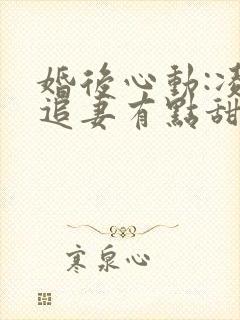 婚後心動:凌
追妻有點甜
寒泉心